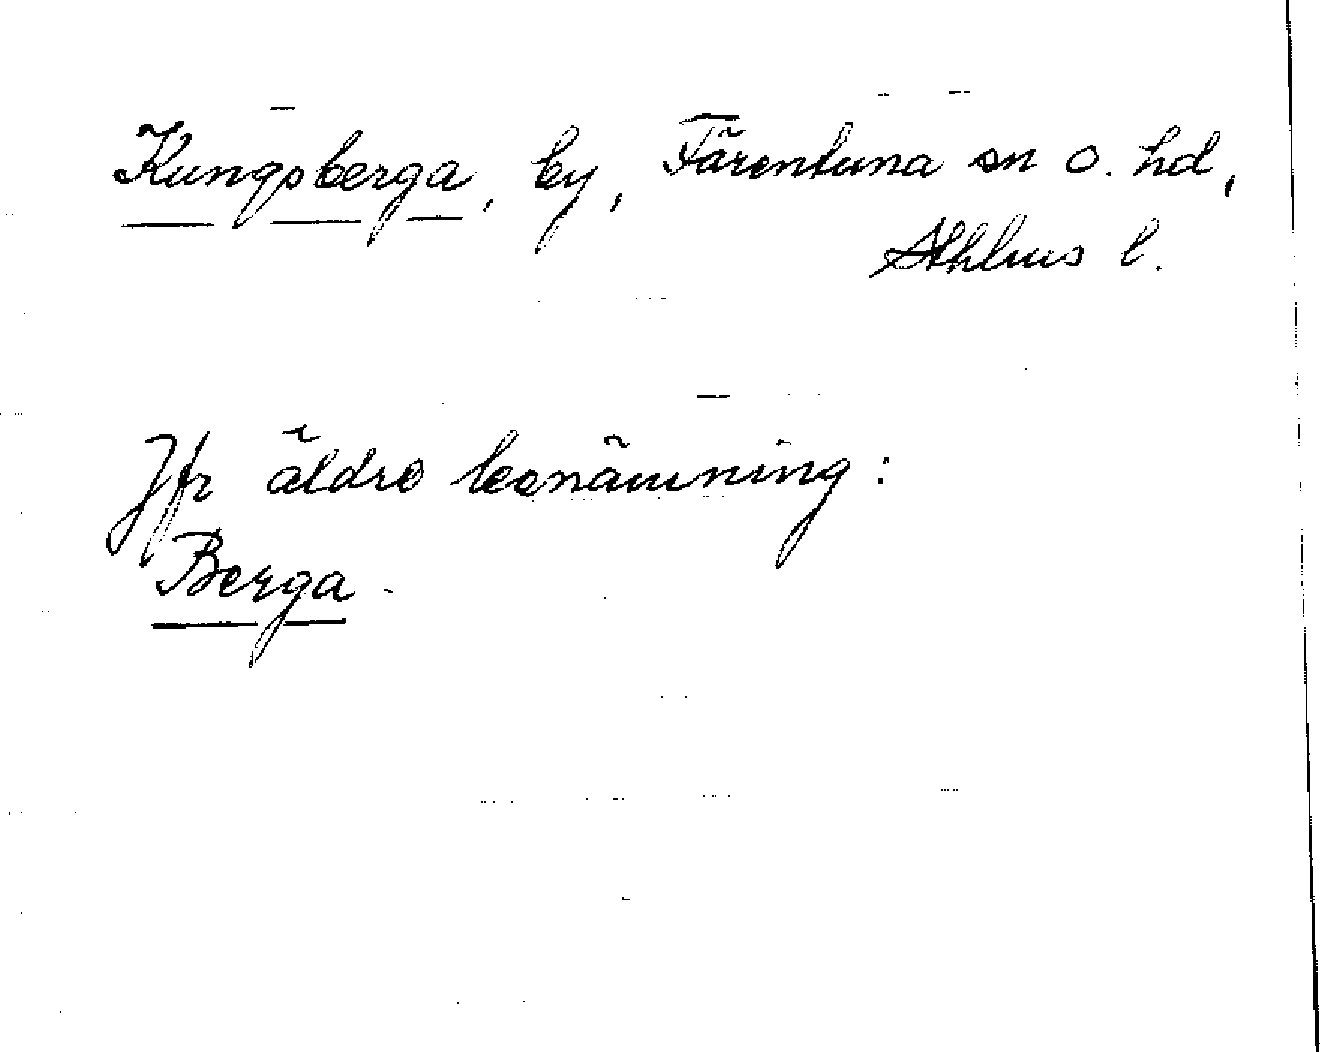 Kungsberga, by, Färentuna sn o. hd,
Sthlms l.
Jfr äldre benämning:
Berga